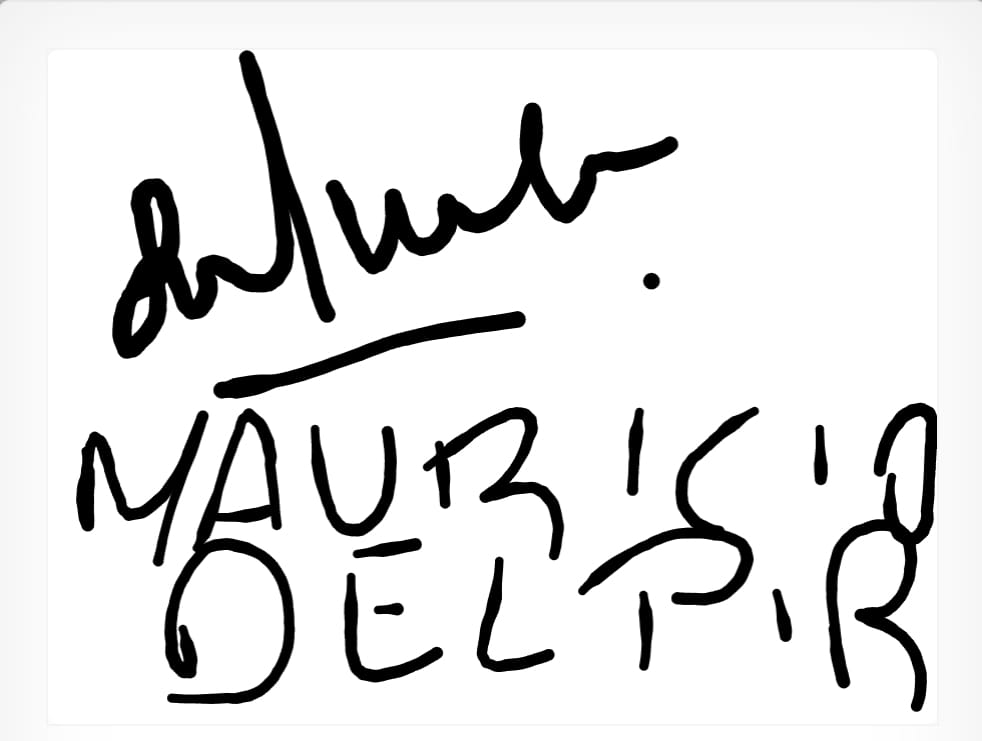 MAURICIO
DELPIR